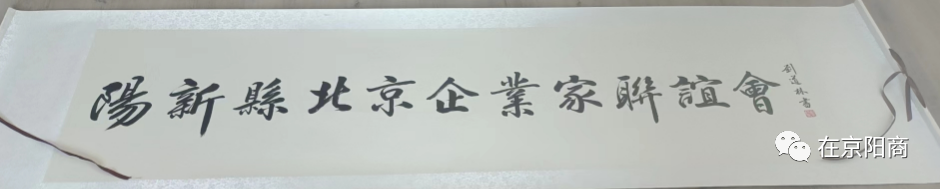 陽新縣北京企業家聯誼會
劉道林書
在京阳商